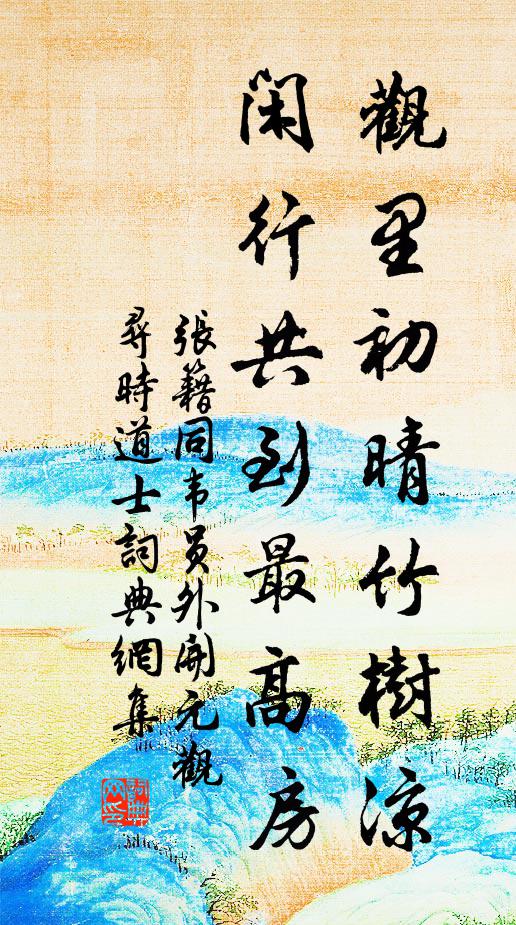 觀里初晴竹樹涼
閑行共到最高房
張籍同韦員外開元觀
尋時道士詞典網集